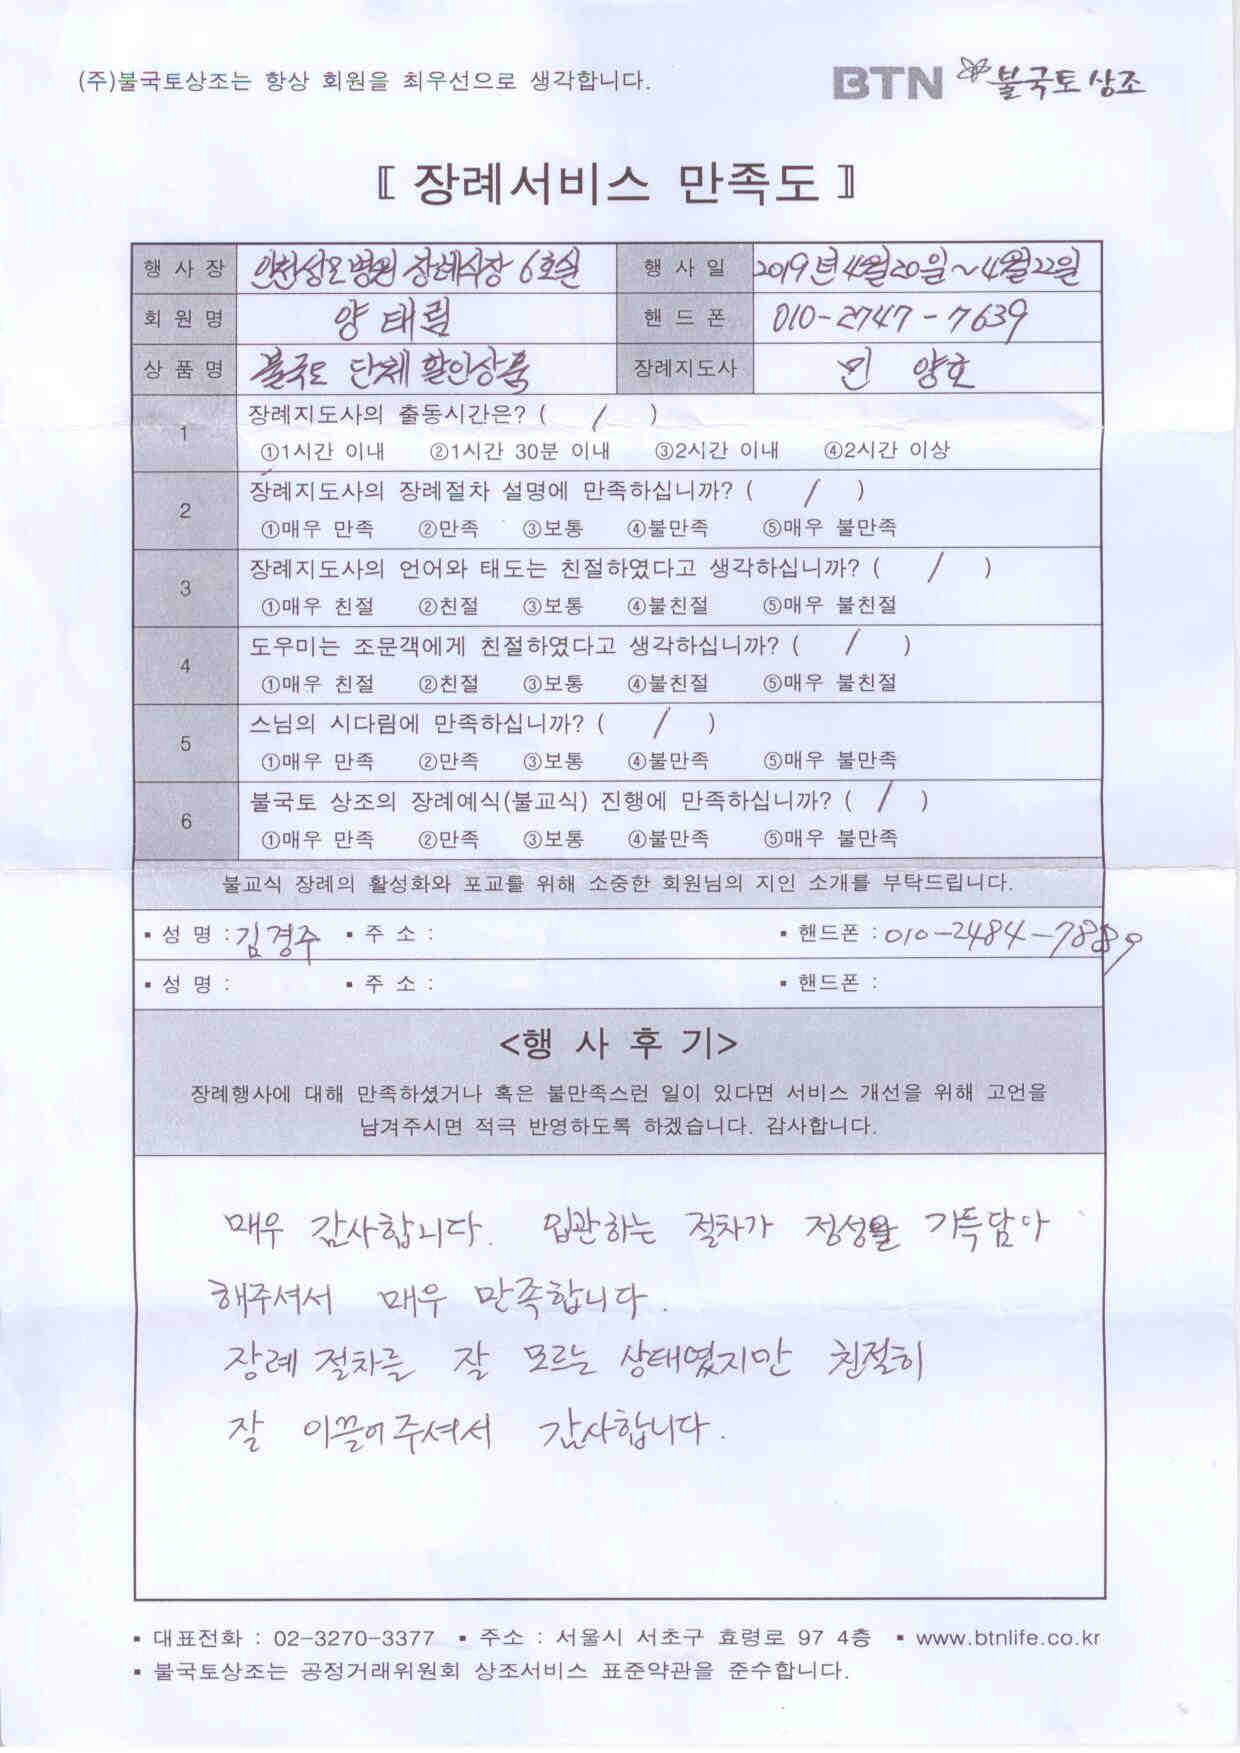 (주)불국토상조는 항상 회원을 최우선으로 생각합니다.
BTN 불국토 상조
〚 장례서비스 만족도 〛
행 사 장 인천성모병원 장례식장 6호실 행 사 일 2019년 4월 20일~4월 22일
회 원 명 양태림 핸 드 폰 010-2747-7639
상 품 명 불국토 단체 할인상품 장례지도사 민 양호
1 장례지도사의 출동시간은? ( / )
①1시간 이내 ②1시간 30분 이내 ③2시간 이내 ④2시간 이상
2 장례지도사의 장례절차 설명에 만족하십니까? ( / )
①매우 만족 ②만족 ③보통 ④불만족 ⑤매우 불만족
3 장례지도사의 언어와 태도는 친절하였다고 생각하십니까? ( / )
①매우 친절 ②친절 ③보통 ④불친절 ⑤매우 불친절
4 도우미는 조문객에게 친절하였다고 생각하십니까? ( / )
①매우 친절 ②친절 ③보통 ④불친절 ⑤매우 불친절
5 스님의 시다림에 만족하십니까? ( / )
①매우 만족 ②만족 ③보통 ④불만족 ⑤매우 불만족
6 불국토 상조의 장례예식(불교식) 진행에 만족하십니까? ( / )
①매우 만족 ②만족 ③보통 ④불만족 ⑤매우 불만족
불교식 장례의 활성화와 포교를 위해 소중한 회원님의 지인 소개를 부탁드립니다.
▪ 성 명 : 김경주 ▪ 주 소 : ▪ 핸드폰 : 010-2484-7889
▪ 성 명 : ▪ 주 소 : ▪ 핸드폰 :
<행 사 후 기>
장례행사에 대해 만족하셨거나 혹은 불만족스런 일이 있다면 서비스 개선을 위해 고언을
남겨주시면 적극 반영하도록 하겠습니다. 감사합니다.
매우 감사합니다. 입관하는 절차가 정성을 가득담아
해주셔서 매우 만족합니다.
장례 절차를 잘 모르는 상태였지만 친절히
잘 이끌어주셔서 감사합니다.
▪ 대표전화 : 02-3270-3377 ▪ 주소 : 서울시 서초구 효령로 97 4층 ▪ www.btnlife.co.kr
▪ 불국토상조는 공정거래위원회 상조서비스 표준약관을 준수합니다.